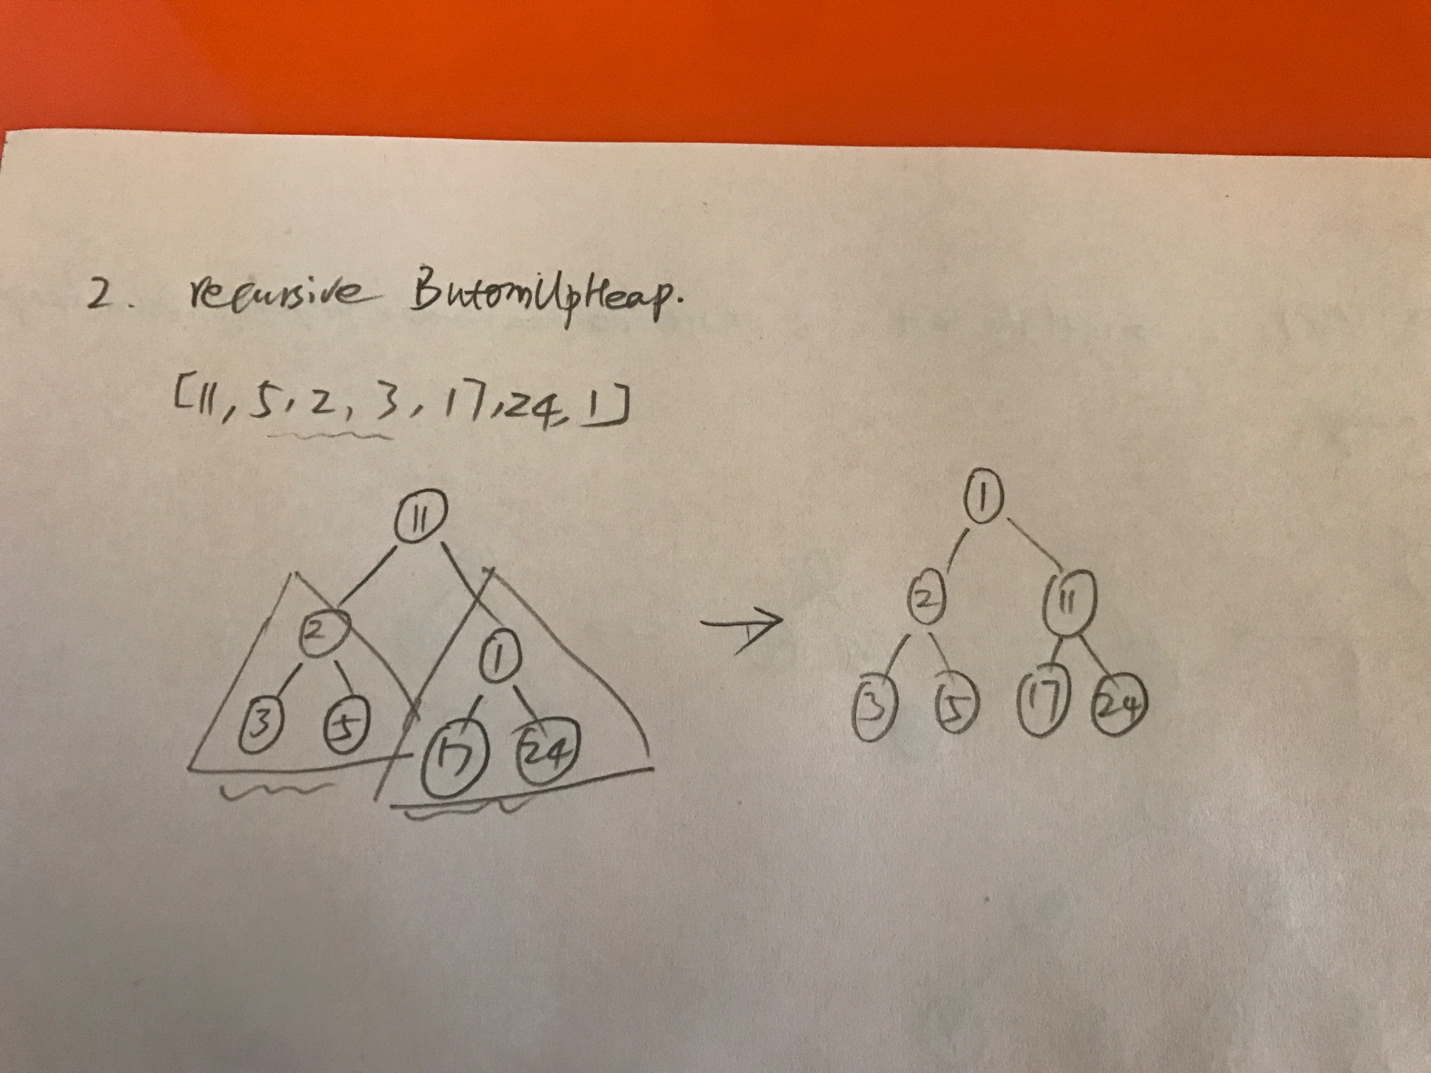 2. recursive ButomUpHeap.
[11, 5, 2, 3, 17, 24, 1]
11
2 1
3 5 17 24
1
2 11
3 5 17 24